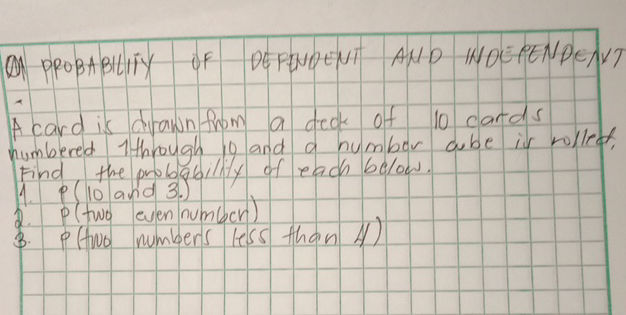 PROBABILITY OF DEPENDENT AND INDEPENDENT
A card is drawn from a deck of 10 cards
numbered 1 through 10 and a number cube is rolled.
Find the probability of each below.
1. P(10 and 3.)
2. P(two even number)
3. P(two numbers less than 4)